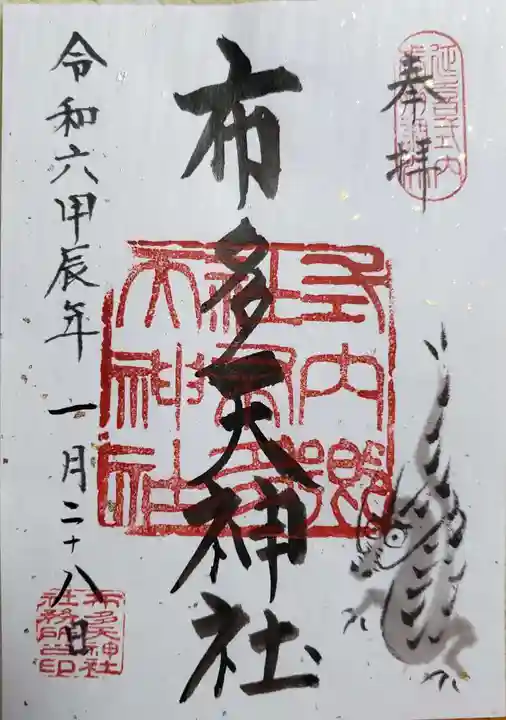 奉拝
布多天神社
令和六甲辰年一月二十八日
式内郷社布多天神社
布多天神社社務所之印